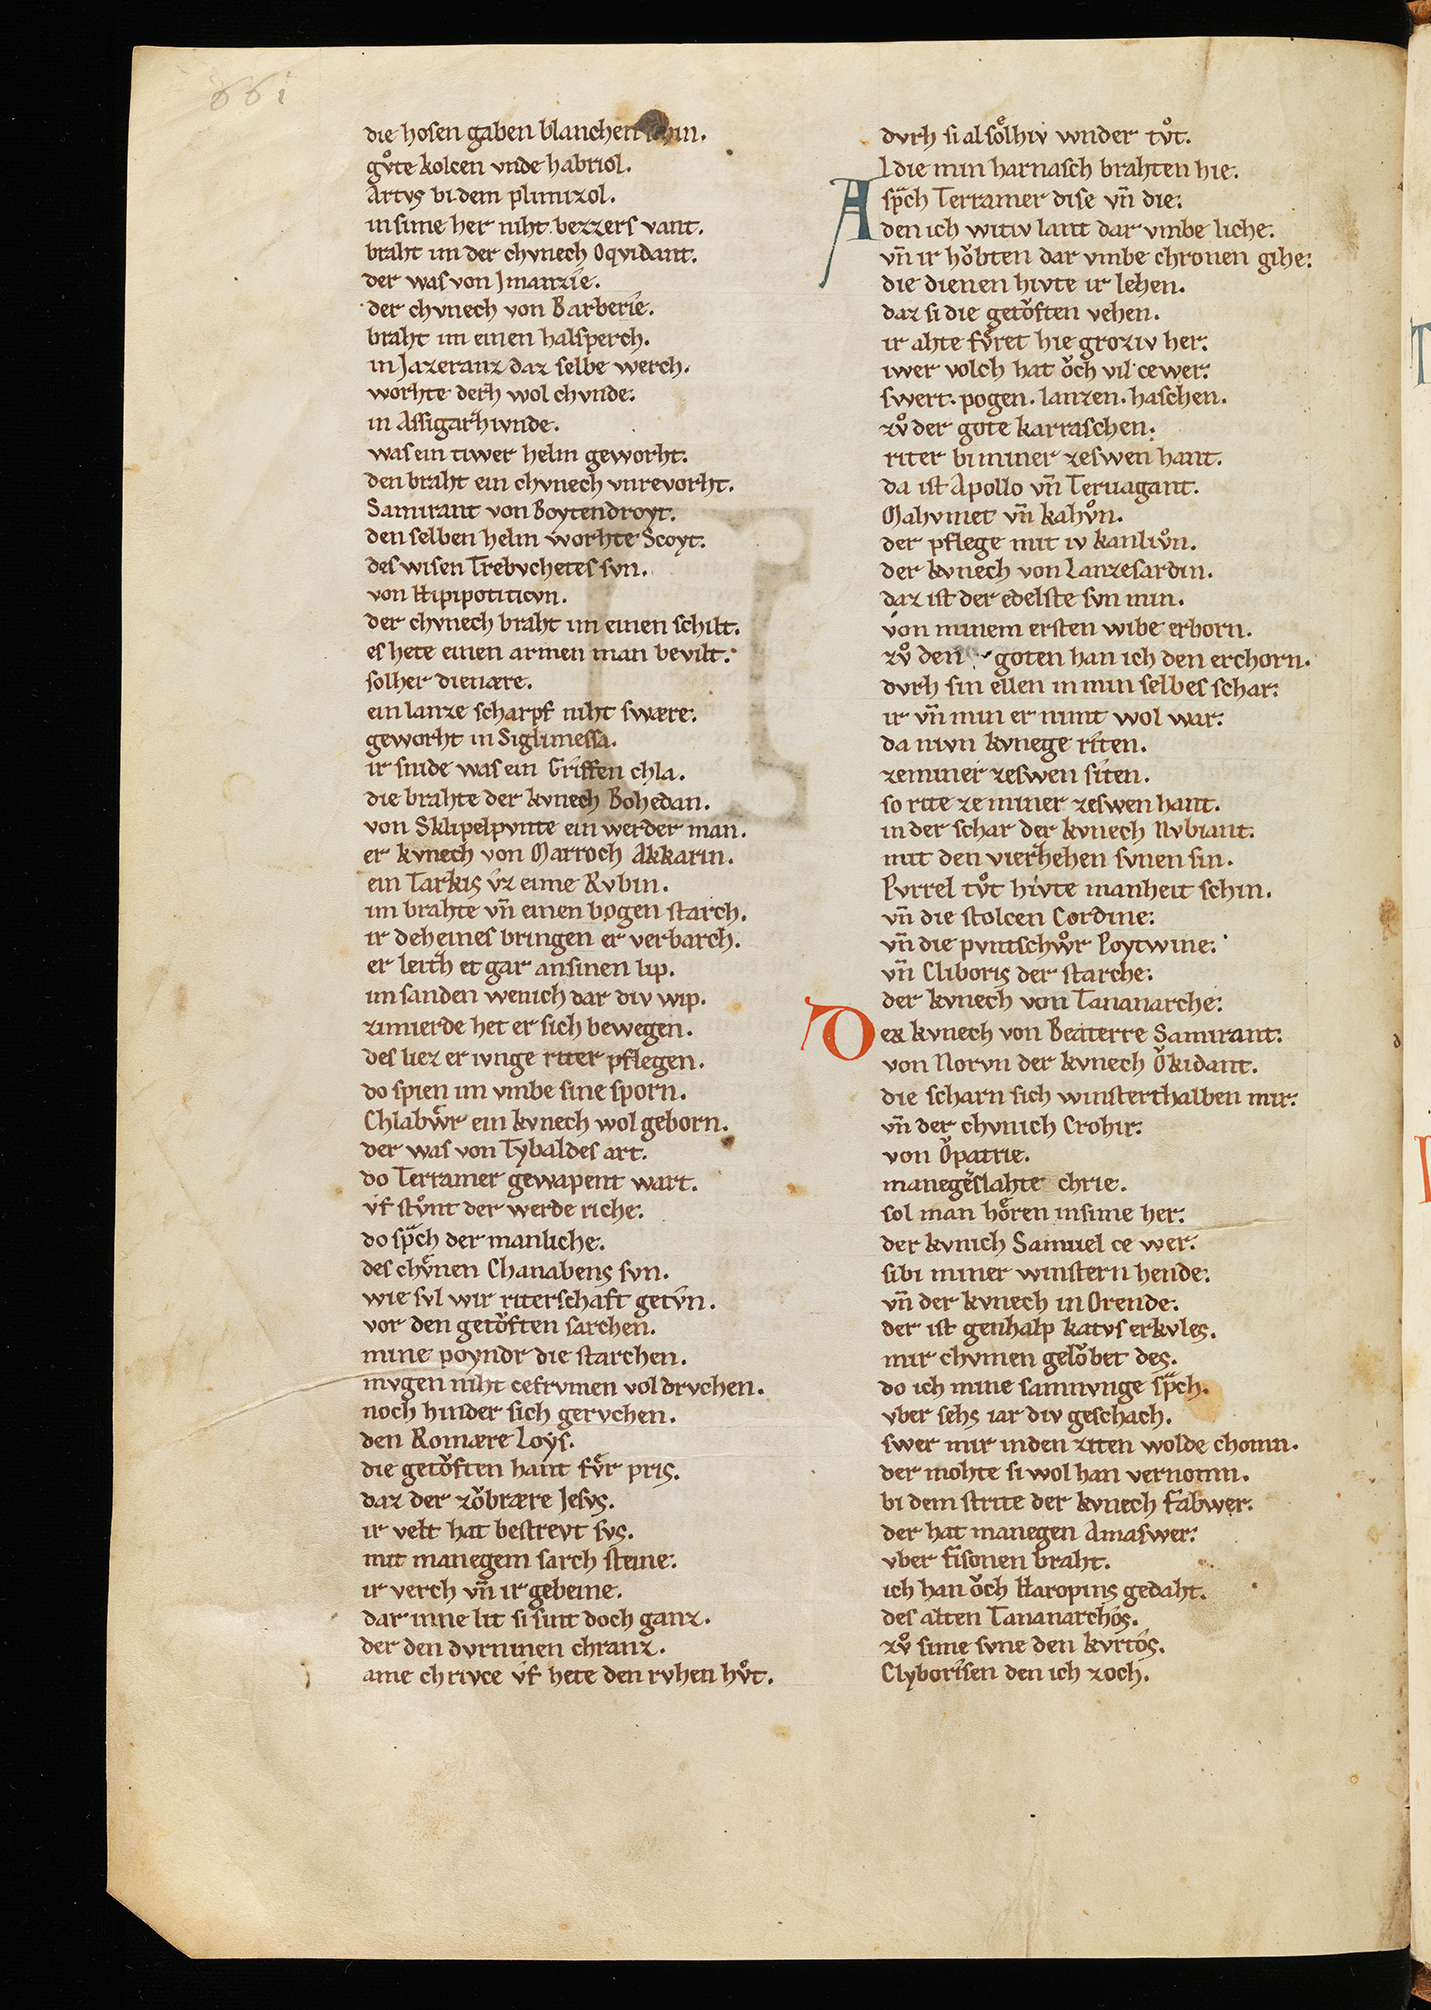 661
die hosen gaben blanchen schin.
gv̊te kolcen vnde habriol.
Artvs bi dem plimizol.
in sime her niht bezzers vant.
braht im der chvnech Oqvidant.
der was von Jmanzie.
der chvnech von Barberíe.
braht im einen halsperch.
in Jazeranz daz selbe werch.
worhte derh wol chvnde.
in Assigarhivnde.
was ein tiwer helm geworht.
den braht ein chvnech vnrevorht.
Samirant von Boytendroyt.
den selben helm worhte Scoyt.
des wisen Trebvchetes svn.
von Kipipotiticvn.
der chvnech braht im einen schilt.
es hete einen armen man bevilt.
solher dienære.
ein lanze scharpf niht swære.
geworht in Siglimessa.
ir snide was ein Griffen chla.
die brahte der kvnech Bohedan.
von Sklipelpvnte ein werder man.
er kvnech von Marroch Akkarin.
ein Tarkis v́z eime Rvbin.
im brahte vn̄ einen bogen starch.
ir deheines bringen er verbarch.
er leith et gar an sinen lip.
im sanden wenich dar div wip.
zimierde het er sich bewegen.
des liez er ivnge riter pflegen.
do spien im vmbe sine sporn.
Chlabwͤr ein kvnech wol geborn.
der was von Tybaldes art.
do Terramer gewapent wart.
v́f stv̊nt der werde riche.
do spͣch der manliche.
des chvͤnen Chanabens svn.
wie svl wir riterschaft getv́n.
vor den getoͮften sarchen.
mine poyndr die starchen.
mvgen niht cefrvmen vol drvchen.
noch hinder sich gervchen.
den Romære Loys.
die getoͮften hant fvͤr pris.
daz der zoͮbrære Jesvs.
ir velt hat bestrevt svs.
mit manegem sarch steine.
ir verch vn̄ ir gebeine.
dar inne lit si sint doch ganz.
der den dvrninen chranz.
ame chrivce v́f hete den rvhen hv̊t.
dvrh si al soͤlhiv wnder tv̊t.
Al die min harnasch brahten hie.
spͣch Terramer dise vn̄ die.
den ich witiv lant dar vmbe liche.
vn̄ ir hoͮbten dar vmbe chronen gihe.
die dienen hivte ir lehen.
daz si die getoͮften vehen.
ir ahte fvͤret hie groziv her.
iwer volch hat oͮch vil ce wer.
swert. pogen. lanzen. haschen.
zv̊ der gote karraschen.
riter bi miner zeswen hant.
da ist Apollo vn̄ Tervagant.
Mahvmet vn̄ kahv̊n.
der pflege mit iv kanliv̊n.
der kvnech von Lanzesardin.
daz ist der edelste svn min.
von minem ersten wibe erborn.
zv̊ den goten han ich den erchorn.
dvrh sin ellen in min selbes schar.
ir vn̄ min er nimt wol war.
da nivn kvnege riten.
ze miner zeswen siten.
so rite ze miner zeswen hant.
in der schar der kvnech Nvbiant.
mit den vierhehen svnen sin.
Pvrrel tv̊t hivte manheit schin.
vn̄ die stolcen Cordine.
vn̄ die pvntschwͦr Poytwine.
vn̄ Cliboris der starche.
der kvnech von Tananarche.
Der kvnech von Beaterre Samirant.
von Norvn der kvnech Oͮkidant.
die scharn sich winsterthalben mir.
vn̄ der chvnich Crohir.
von Oͮpatrie.
maneger slahte chrie.
sol man hoͤren in sime her.
der kvnich Samuel ce wer.
si bi miner winstern hende.
vn̄ der kvnech in Orende.
der ist genhalp katvs erkvles.
mir chvmen geloͮbet des.
do ich mine samnvnge spͣch.
vber sehs iar div geschach.
swer mir in den ziten wolde chomn.
der mohte si wol han vernomn.
bi dem strite der kvnech Fabwer.
der hat manegen Amaswer.
vber fisonen braht.
ich han oͮch Karopins gedaht.
des alten Tananarchós.
zv̊ sime svne den kvrtós.
Clyborisen den ich zoch.